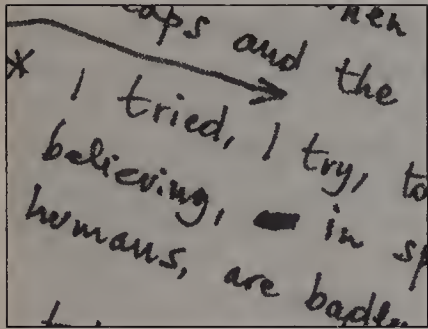 and the
* I tried, I try, to
believing, in
humans, are badly